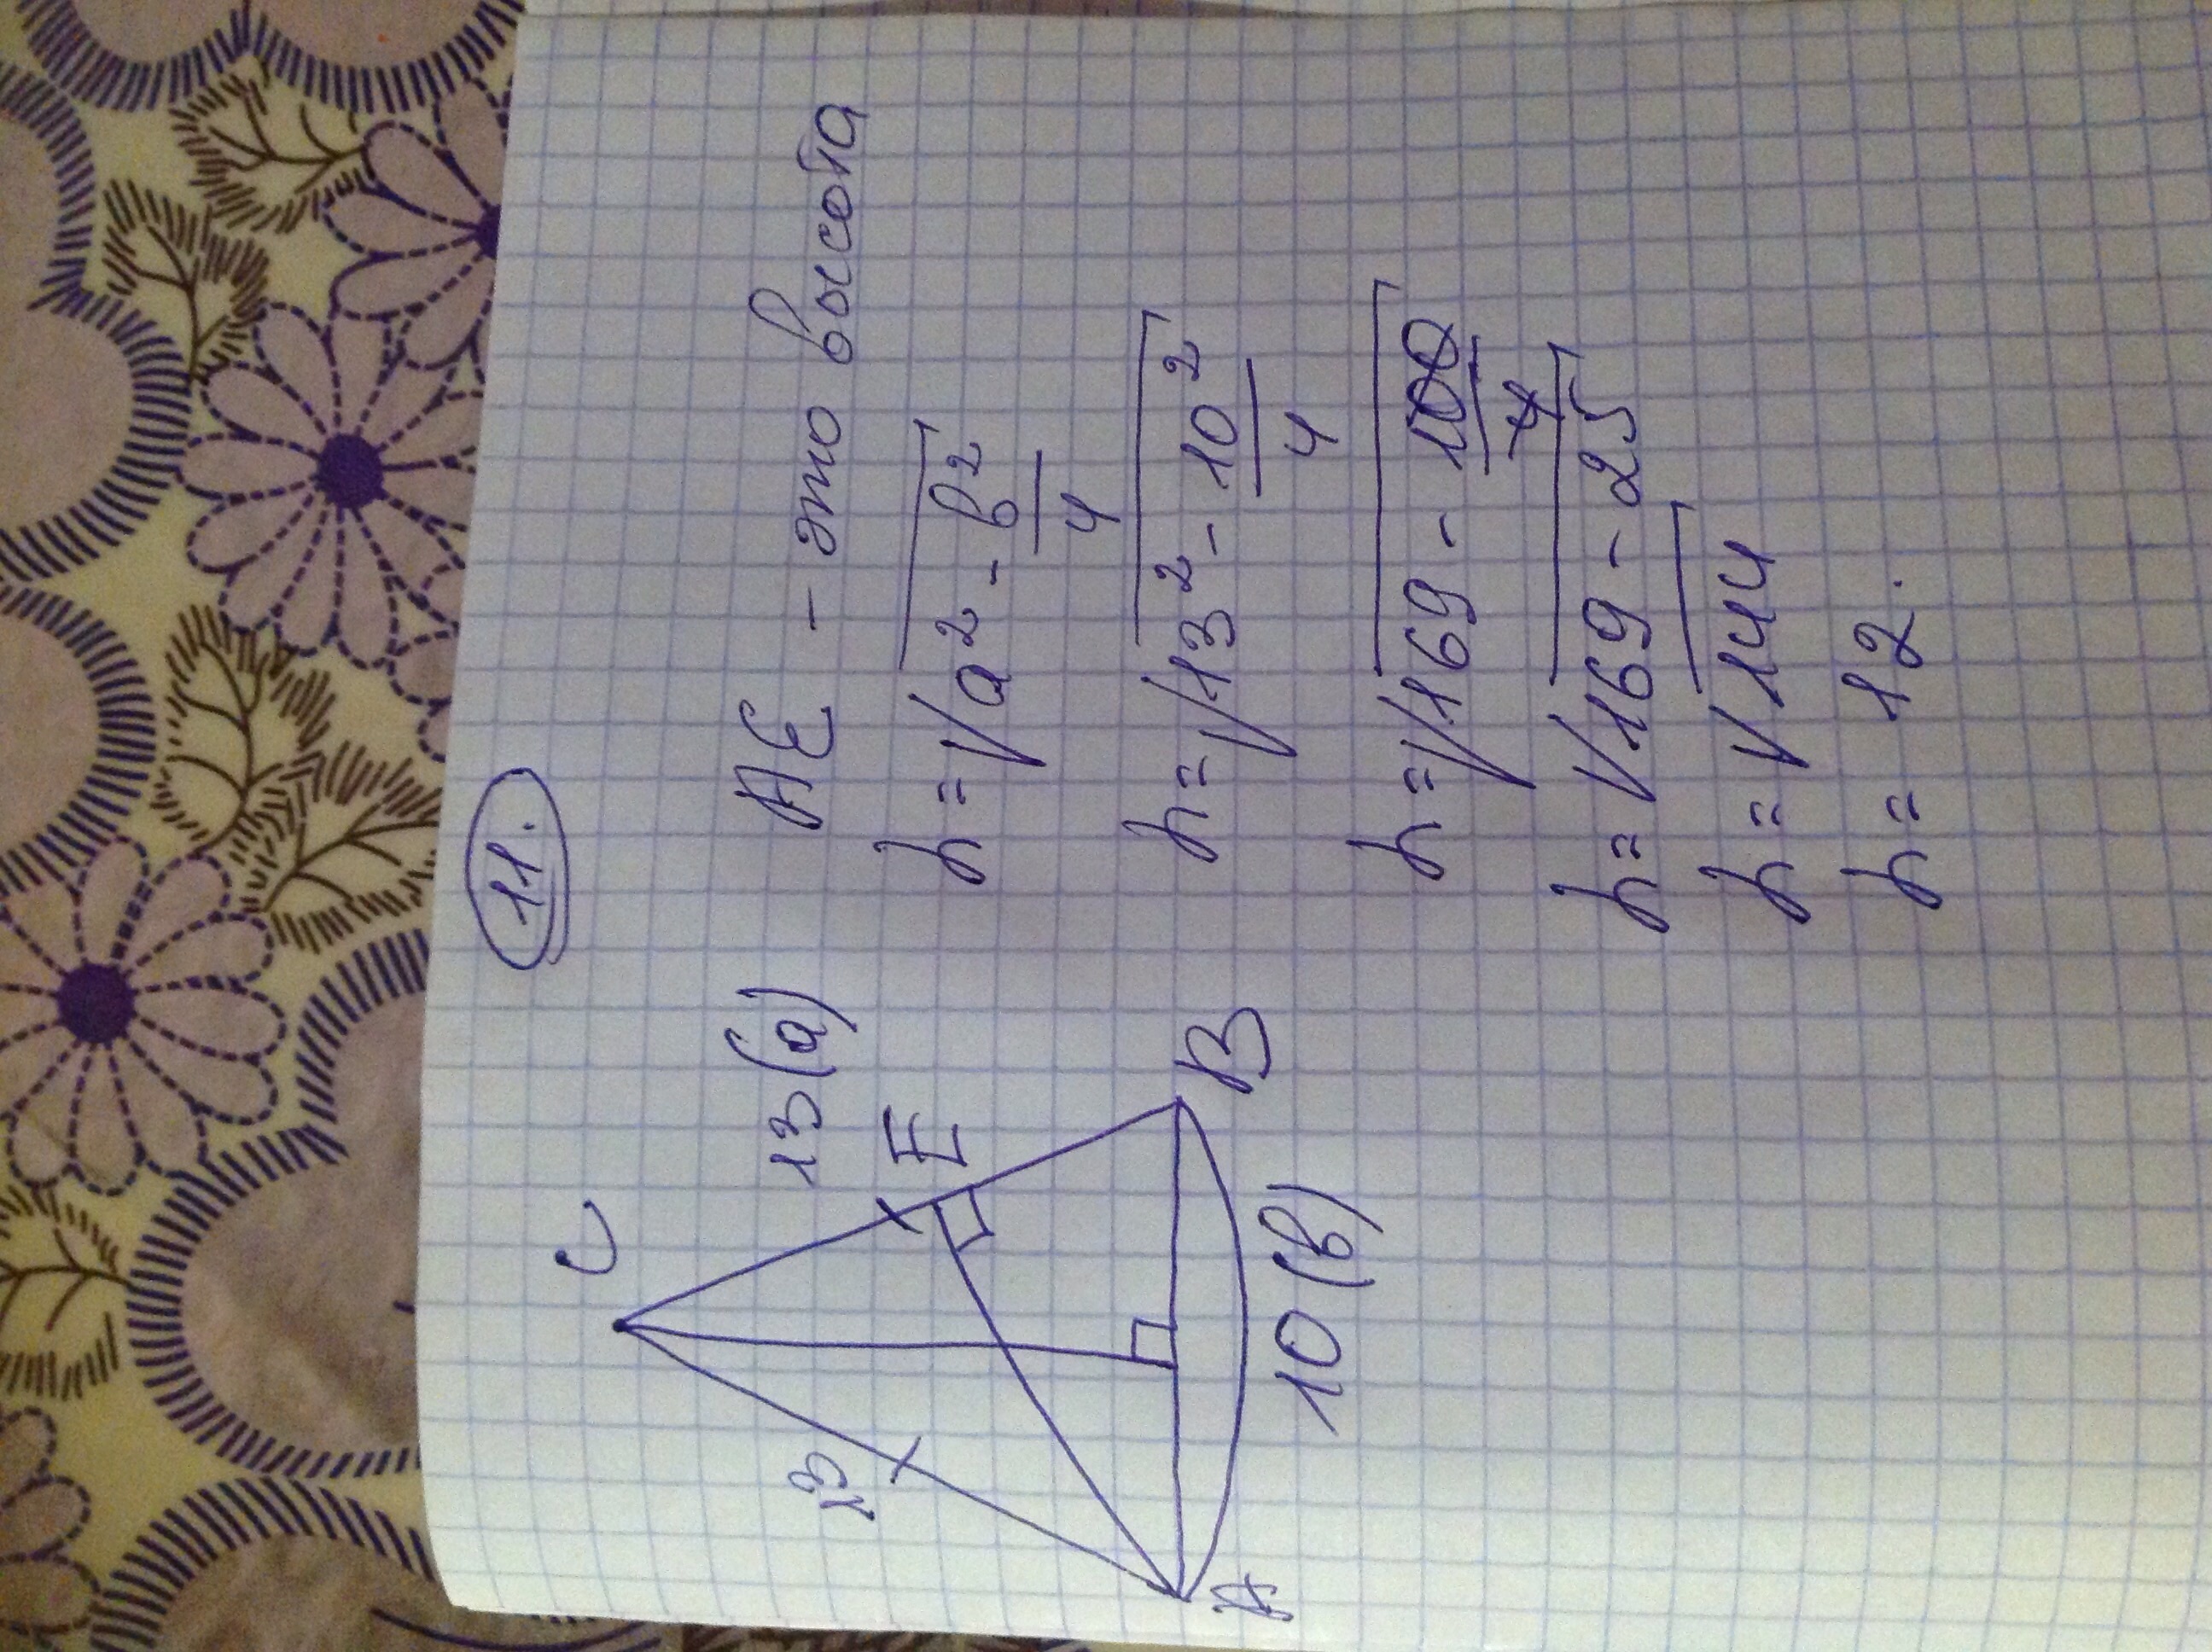 11.
C
13
13(a)
E
A
B
10(в)
AE - это высота
h=√a² - в²/4
h=√13² - 10²/4
h=√169 - 100/4
h=√169 - 25
h=√144
h= 12.